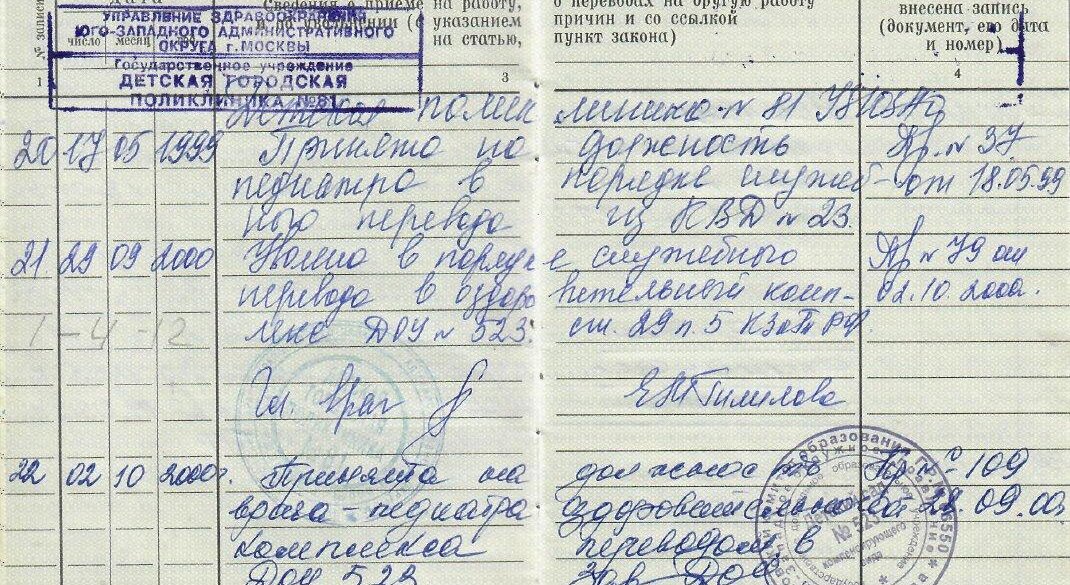 дата
Сведения о приеме на работу,
о переводах на другую работу
внесена запись
и увольнении (с указанием
причин и со ссылкой
(документ, его дата
на статью,
пункт закона)
и номер)
№ записи
число месяц
УПРАВЛЕНИЕ ЗДРАВООХРАНЕНИЯ
ЮГО-ЗАПАДНОГО АДМИНИСТРАТИВНОГО
ОКРУГА г. МОСКВЫ
Государственное учреждение
ДЕТСКАЯ ГОРОДСКАЯ
ПОЛИКЛИНИКА №81
1 3 4
Детская поликлиника № 81
20 17 05 1999 Принята на должность Пр. № 37
педиатра в порядке служеб- от 18.05.99
ного перевода из КВД № 23.
21 29 09 2000 Уволена в порядке служебного Пр № 79 от
перевода в оздоровительный комп- 02.10.2000.
лекс ДОУ № 523. ст. 29 п. 5 КЗоТа РФ.
1-4-12
Гл. врач
22 02 10 2000г. Принята на должность Пр. № 109
врача-педиатра оздоровительного 29.09.00
комплекса переводом в
ДОУ 523 Зав. ДОУ
№ 523